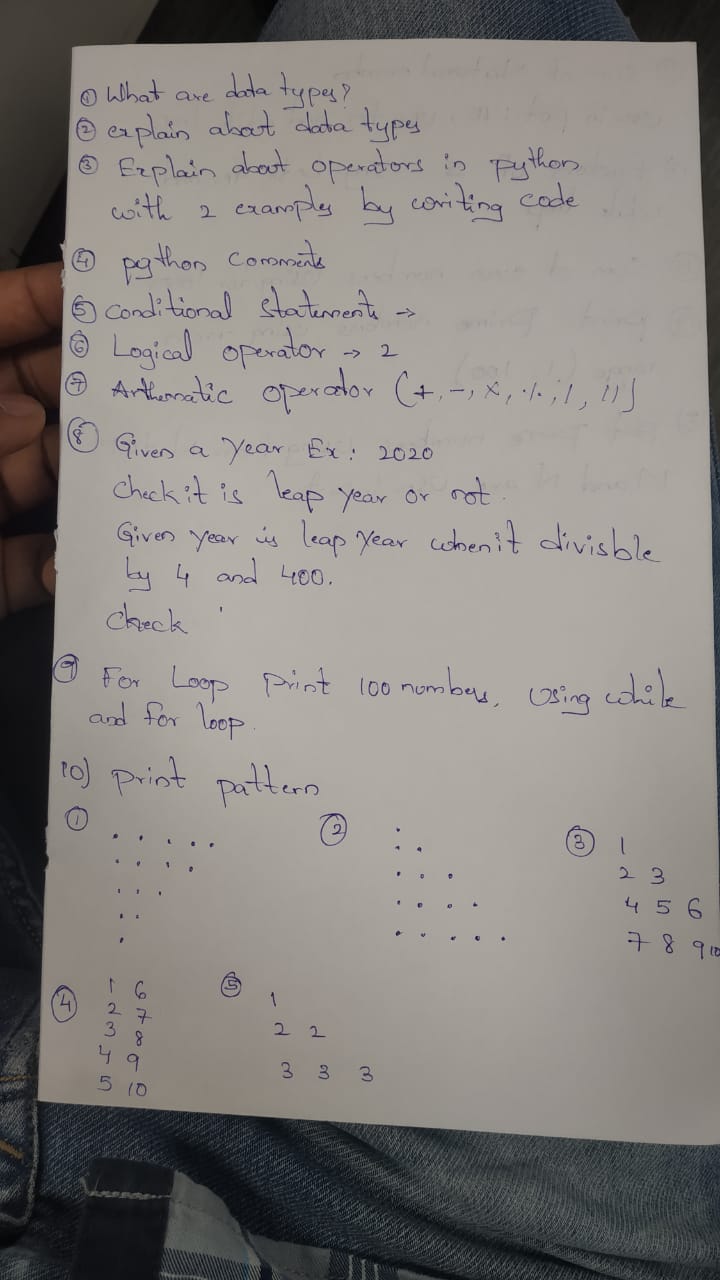 ① What are data types?
② explain about data types
③ Explain about operators in python
with 2 examples by writing code
④ python comments
⑤ conditional statements →
⑥ Logical operator → 2
⑦ Arthematic operator (+, -, ×, %, /, //)
⑧ Given a year Ex: 2020
Check it is leap year or not.
Given year is leap year when it divisble
by 4 and 400.
Check
⑨ For Loop print 100 numbers, using while
and for loop.
10) print pattern
① . . . . .
② .
③ 1
. . . .
. .
2 3
. . .
. . .
4 5 6
. .
. . . .
7 8 9 10
.
. . . . .
④ 1 6
⑤ 1
2 7
2 2
3 8
4 9
3 3 3
5 10